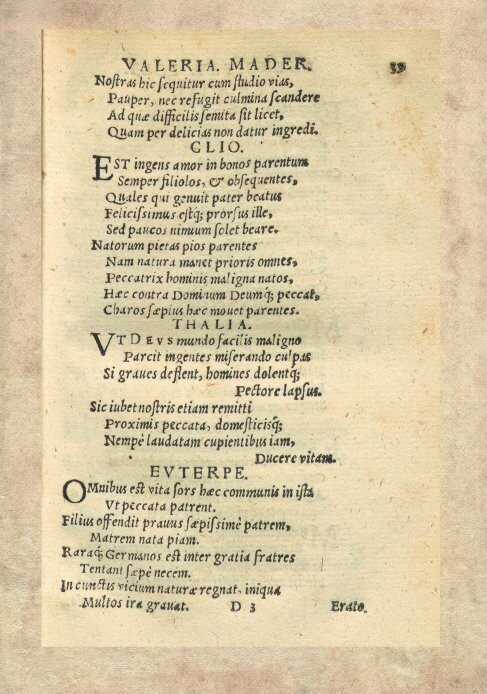 VALERIA. MADER. 39
Nostras hic sequitur cum studio vias,
Pauper, nec refugit culmina scandere
Ad quæ difficilis semita sit licet,
Quam per delicias non datur ingredi.
CLIO.
EST ingens amor in bonos parentum
Semper filiolos, & obsequentes,
Quales qui genuit pater beatus
Felicissimus estq; prorsus ille,
Sed paucos nimium solet beare.
Natorum pietas pios parentes
Nam natura manet prioris omnes,
Peccatrix hominis maligna natos,
Hæc contra Dominum Deumq; peccat,
Charos sæpius hæc mouet parentes.
THALIA.
VT DEVS mundo facilis maligno
Parcit ingentes miserando culpas
Si graues deflent, homines dolentq;
Pectore lapsus.
Sic iubet nostris etiam remitti
Proximis peccata, domesticisq;
Nempè laudatam cupientibus iam,
Ducere vitam.
EVTERPE.
OMnibus est vita sors hæc communis in ista
Vt peccata patrent.
Filius offendit prauus sæpissimè patrem,
Matrem nata piam.
Raraq; Germanos est inter gratia fratres
Tentant sæpè necem.
In cunctis vicium naturæ regnat, iniqua
Multos ira grauat. D 3 Erato.